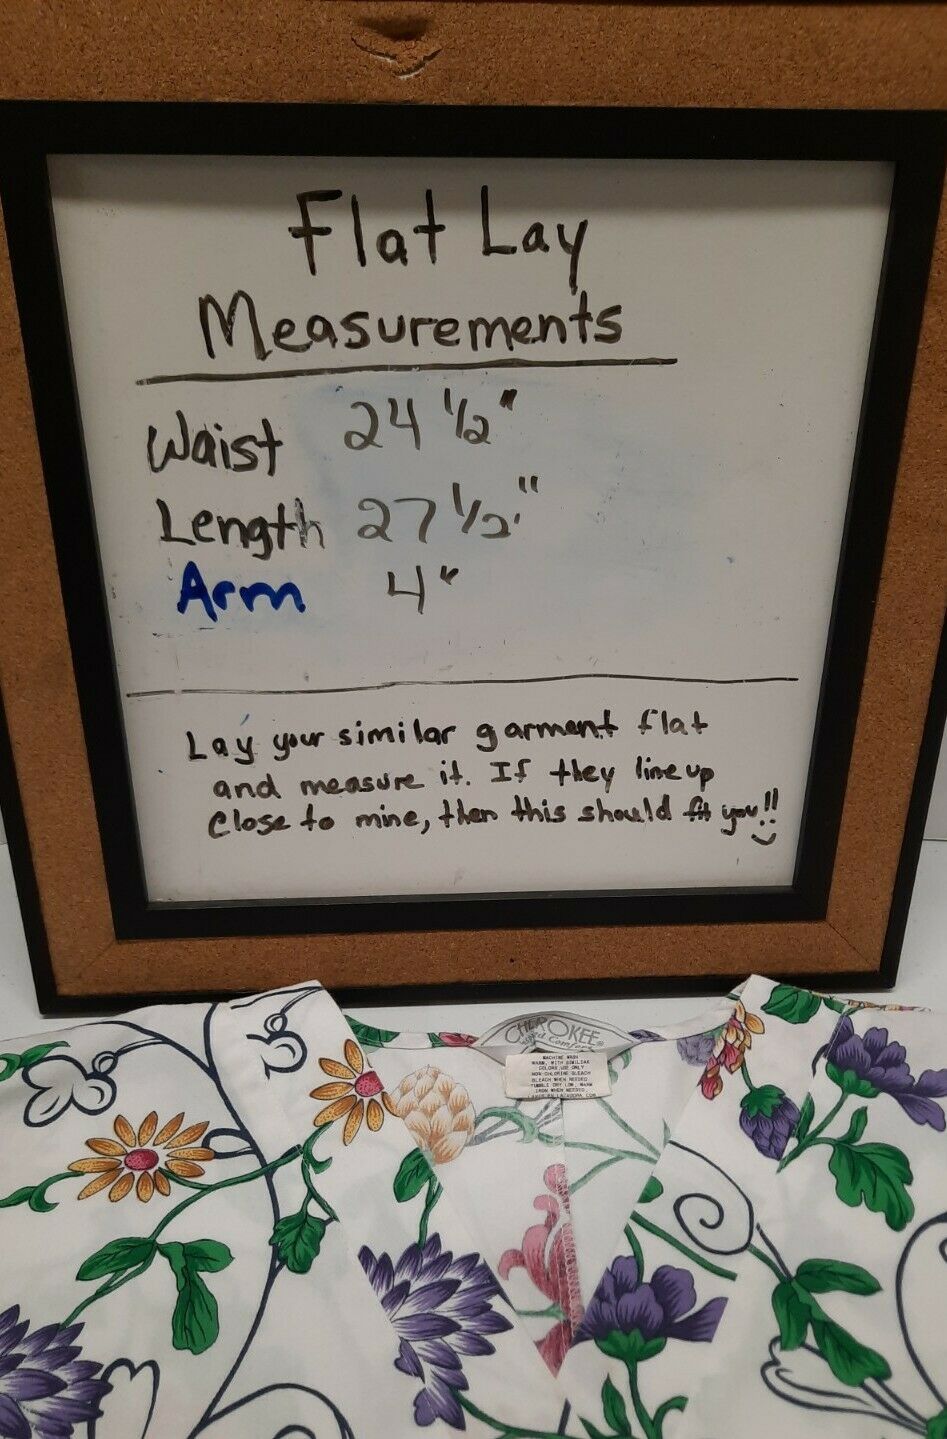 Flat Lay
Measurements
Waist 24 1/2"
Length 27 1/2"
Arm 4"
Lay your similar garment flat
and measure it. If they line up
close to mine, then this should fit you!!
CHEROKEE
MACHINE WASH
WARM, WITH SIMILAR
COLORS. USE ONLY
NON-CHLORINE BLEACH
BLEACH WHEN NEEDED
TUMBLE DRY LOW, WARM
IRON WHEN NEEDED.